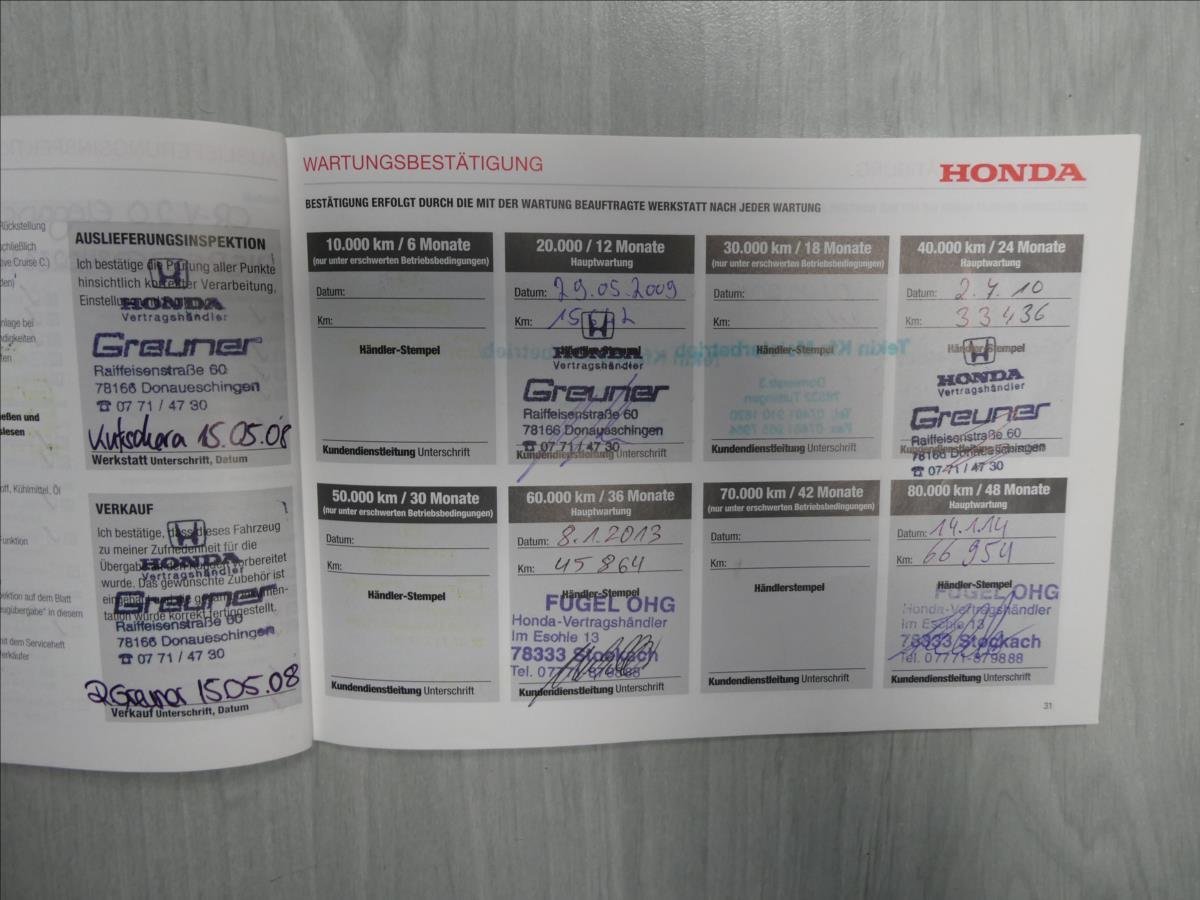 Rückstellung
AUSLIEFERUNGSINSPEKTION
Ich bestätige die Prüfung aller Punkte
hinsichtlich korrekter Verarbeitung,
HONDA
Vertragshändler
Greuner
Raiffeisenstraße 60
78166 Donaueschingen
☎ 07 71 / 47 30
15.05.08
Werkstatt Unterschrift, Datum
VERKAUF
Ich bestätige, dass dieses Fahrzeug
zu meiner Zufriedenheit für die
HONDA
Vertragshändler
wurde. Das gewünschte Zubehör ist
Greuner
tation wurde korrekt fertiggestellt.
Raiffeisenstraße 60
78166 Donaueschingen
☎ 07 71 / 47 30
Greuner 15.05.08
Verkauf Unterschrift, Datum
WARTUNGSBESTÄTIGUNG
HONDA
BESTÄTIGUNG ERFOLGT DURCH DIE MIT DER WARTUNG BEAUFTRAGTE WERKSTATT NACH JEDER WARTUNG
10.000 km / 6 Monate
(nur unter erschwerten Betriebsbedingungen)
Datum:
Km:
Händler-Stempel
Kundendienstleitung Unterschrift
20.000 / 12 Monate
Hauptwartung
Datum: 29.05.2009
Km:
HONDA
Vertragshändler
Greuner
Raiffeisenstraße 60
78166 Donaueschingen
☎ 07 71 / 47 30
Kundendienstleitung Unterschrift
30.000 km / 18 Monate
(nur unter erschwerten Betriebsbedingungen)
Datum:
Km:
Händler-Stempel
Kundendienstleitung Unterschrift
40.000 km / 24 Monate
Hauptwartung
Datum: 2.4.10
Km: 33436
Händler-Stempel
HONDA
Vertragshändler
Greuner
Raiffeisenstraße 60
78166 Donaueschingen
☎ 07 71 / 47 30
50.000 km / 30 Monate
(nur unter erschwerten Betriebsbedingungen)
Datum:
Km:
Händler-Stempel
Kundendienstleitung Unterschrift
60.000 km / 36 Monate
Hauptwartung
Datum: 8.1.2013
Km: 45864
Händler-Stempel
FUGEL OHG
Honda-Vertragshändler
Im Eschle 13
78333 Stockach
Tel. 07771-879888
Kundendienstleitung Unterschrift
70.000 km / 42 Monate
(nur unter erschwerten Betriebsbedingungen)
Datum:
Km:
Händlerstempel
Kundendienstleitung Unterschrift
80.000 km / 48 Monate
Hauptwartung
Datum: 14.1.14
Km: 66954
Händler-Stempel
FUGEL OHG
Honda-Vertragshändler
Im Eschle 13
78333 Stockach
Tel. 07771-879888
Kundendienstleitung Unterschrift
31